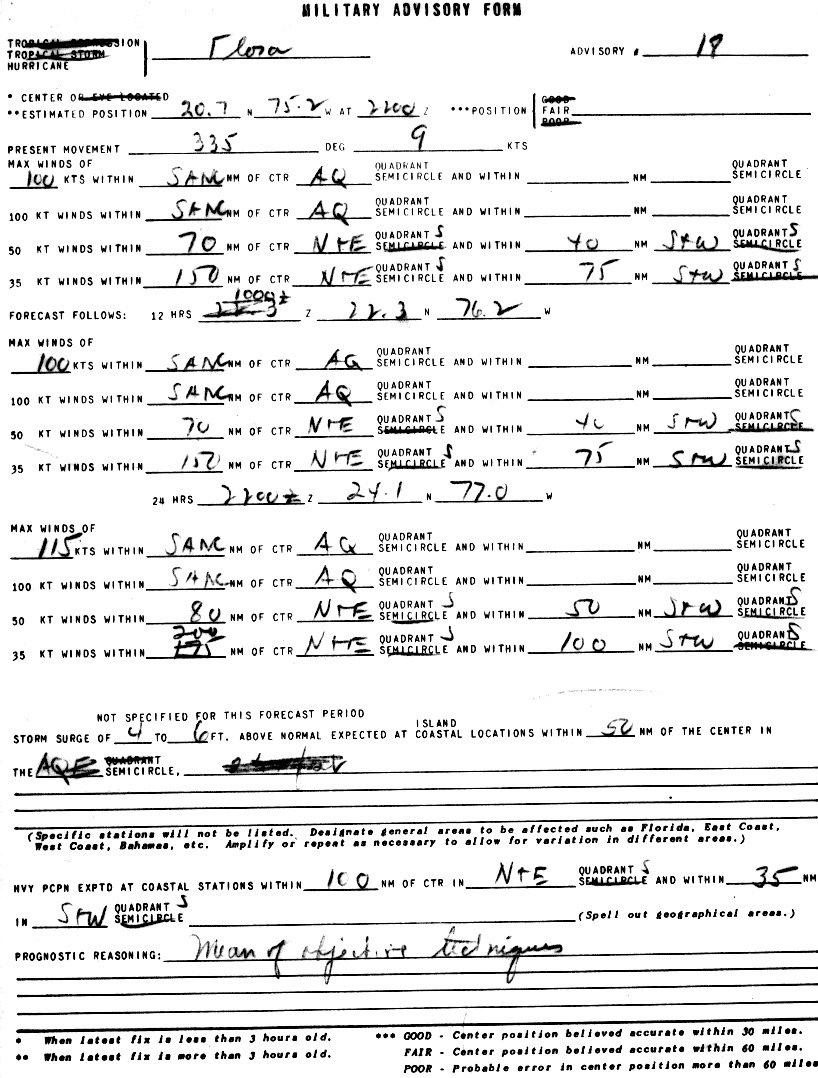 MILITARY ADVISORY FORM
TROPICAL DEPRESSION
TROPICAL STORM Flora ADVISORY # 18
HURRICANE
* CENTER OR EYE LOCATED GOOD
**ESTIMATED POSITION 20.7 N 75.2 W AT 2200 Z ***POSITION FAIR
POOR
PRESENT MOVEMENT 335 DEG 9 KTS
MAX WINDS OF QUADRANT QUADRANT
100 KTS WITHIN SANC NM OF CTR AQ SEMICIRCLE AND WITHIN NM SEMICIRCLE
QUADRANT QUADRANT
100 KT WINDS WITHIN SANC NM OF CTR AQ SEMICIRCLE AND WITHIN NM SEMICIRCLE
QUADRANT S QUADRANT S
50 KT WINDS WITHIN 70 NM OF CTR N+E SEMICIRCLE AND WITHIN 40 NM S+W SEMICIRCLE
QUADRANT S QUADRANT S
35 KT WINDS WITHIN 150 NM OF CTR N+E SEMICIRCLE AND WITHIN 75 NM S+W SEMICIRCLE
1000z
FORECAST FOLLOWS: 12 HRS Z 22.3 N 76.2 W
MAX WINDS OF QUADRANT QUADRANT
100 KTS WITHIN SANC NM OF CTR AQ SEMICIRCLE AND WITHIN NM SEMICIRCLE
QUADRANT QUADRANT
100 KT WINDS WITHIN SANC NM OF CTR AQ SEMICIRCLE AND WITHIN NM SEMICIRCLE
QUADRANT S QUADRANT S
50 KT WINDS WITHIN 70 NM OF CTR N+E SEMICIRCLE AND WITHIN 40 NM S+W SEMICIRCLE
QUADRANT S QUADRANT S
35 KT WINDS WITHIN 150 NM OF CTR N+E SEMICIRCLE AND WITHIN 75 NM S+W SEMICIRCLE
24 HRS 2200z Z 24.1 N 77.0 W
MAX WINDS OF QUADRANT QUADRANT
115 KTS WITHIN SANC NM OF CTR AQ SEMICIRCLE AND WITHIN NM SEMICIRCLE
QUADRANT QUADRANT
100 KT WINDS WITHIN SANC NM OF CTR AQ SEMICIRCLE AND WITHIN NM SEMICIRCLE
QUADRANT S QUADRANT S
50 KT WINDS WITHIN 80 NM OF CTR N+E SEMICIRCLE AND WITHIN 50 NM S+W SEMICIRCLE
200 QUADRANT S QUADRANT S
35 KT WINDS WITHIN 175 NM OF CTR N+E SEMICIRCLE AND WITHIN 100 NM S+W SEMICIRCLE
NOT SPECIFIED FOR THIS FORECAST PERIOD ISLAND
STORM SURGE OF 4 TO 6 FT. ABOVE NORMAL EXPECTED AT COASTAL LOCATIONS WITHIN 50 NM OF THE CENTER IN
QUADRANT
THE SEMICIRCLE,
(Specific stations will not be listed. Designate general areas to be affected such as Florida, East Coast,
West Coast, Bahamas, etc. Amplify or repeat as necessary to allow for variation in different areas.)
QUADRANT S
HVY PCPN EXPTD AT COASTAL STATIONS WITHIN 100 NM OF CTR IN N+E SEMICIRCLE AND WITHIN 35 NM
QUADRANT S
IN S+W SEMICIRCLE (Spell out geographical areas.)
PROGNOSTIC REASONING: Mean of objective techniques
* When latest fix is less than 3 hours old. *** GOOD - Center position believed accurate within 30 miles.
** When latest fix is more than 3 hours old. FAIR - Center position believed accurate within 60 miles.
POOR - Probable error in center position more than 60 miles